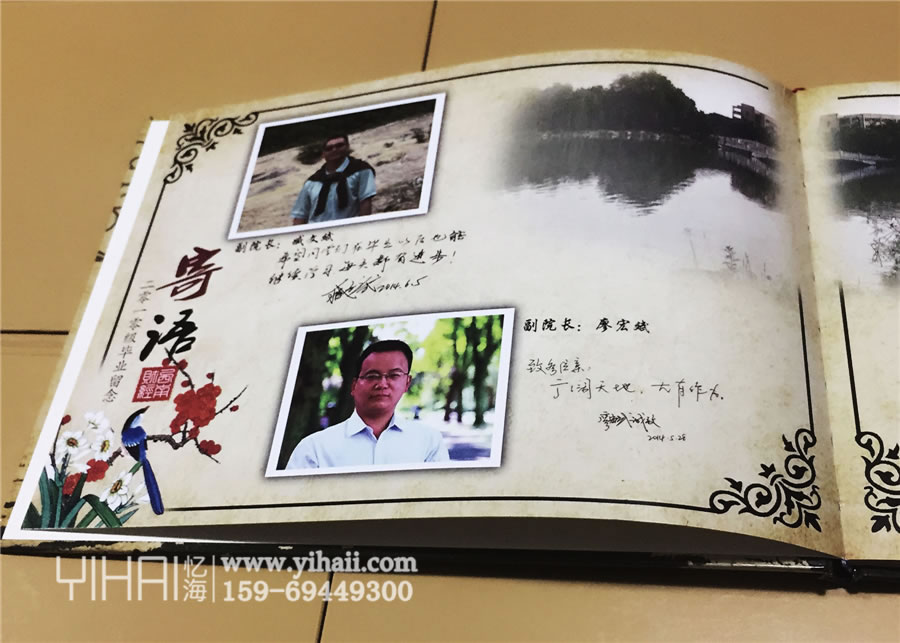 寄语
二零一零级毕业留念
西南财经
副院长：臧文斌
希望同学们在毕业以后也能
继续学习 每天都有进步！
2014.6.5
副院长：廖宏斌
致各位亲：
广阔天地，大有作为。
2014.5.28
YIHAI 忆海 www.yihaii.com
159-69449300